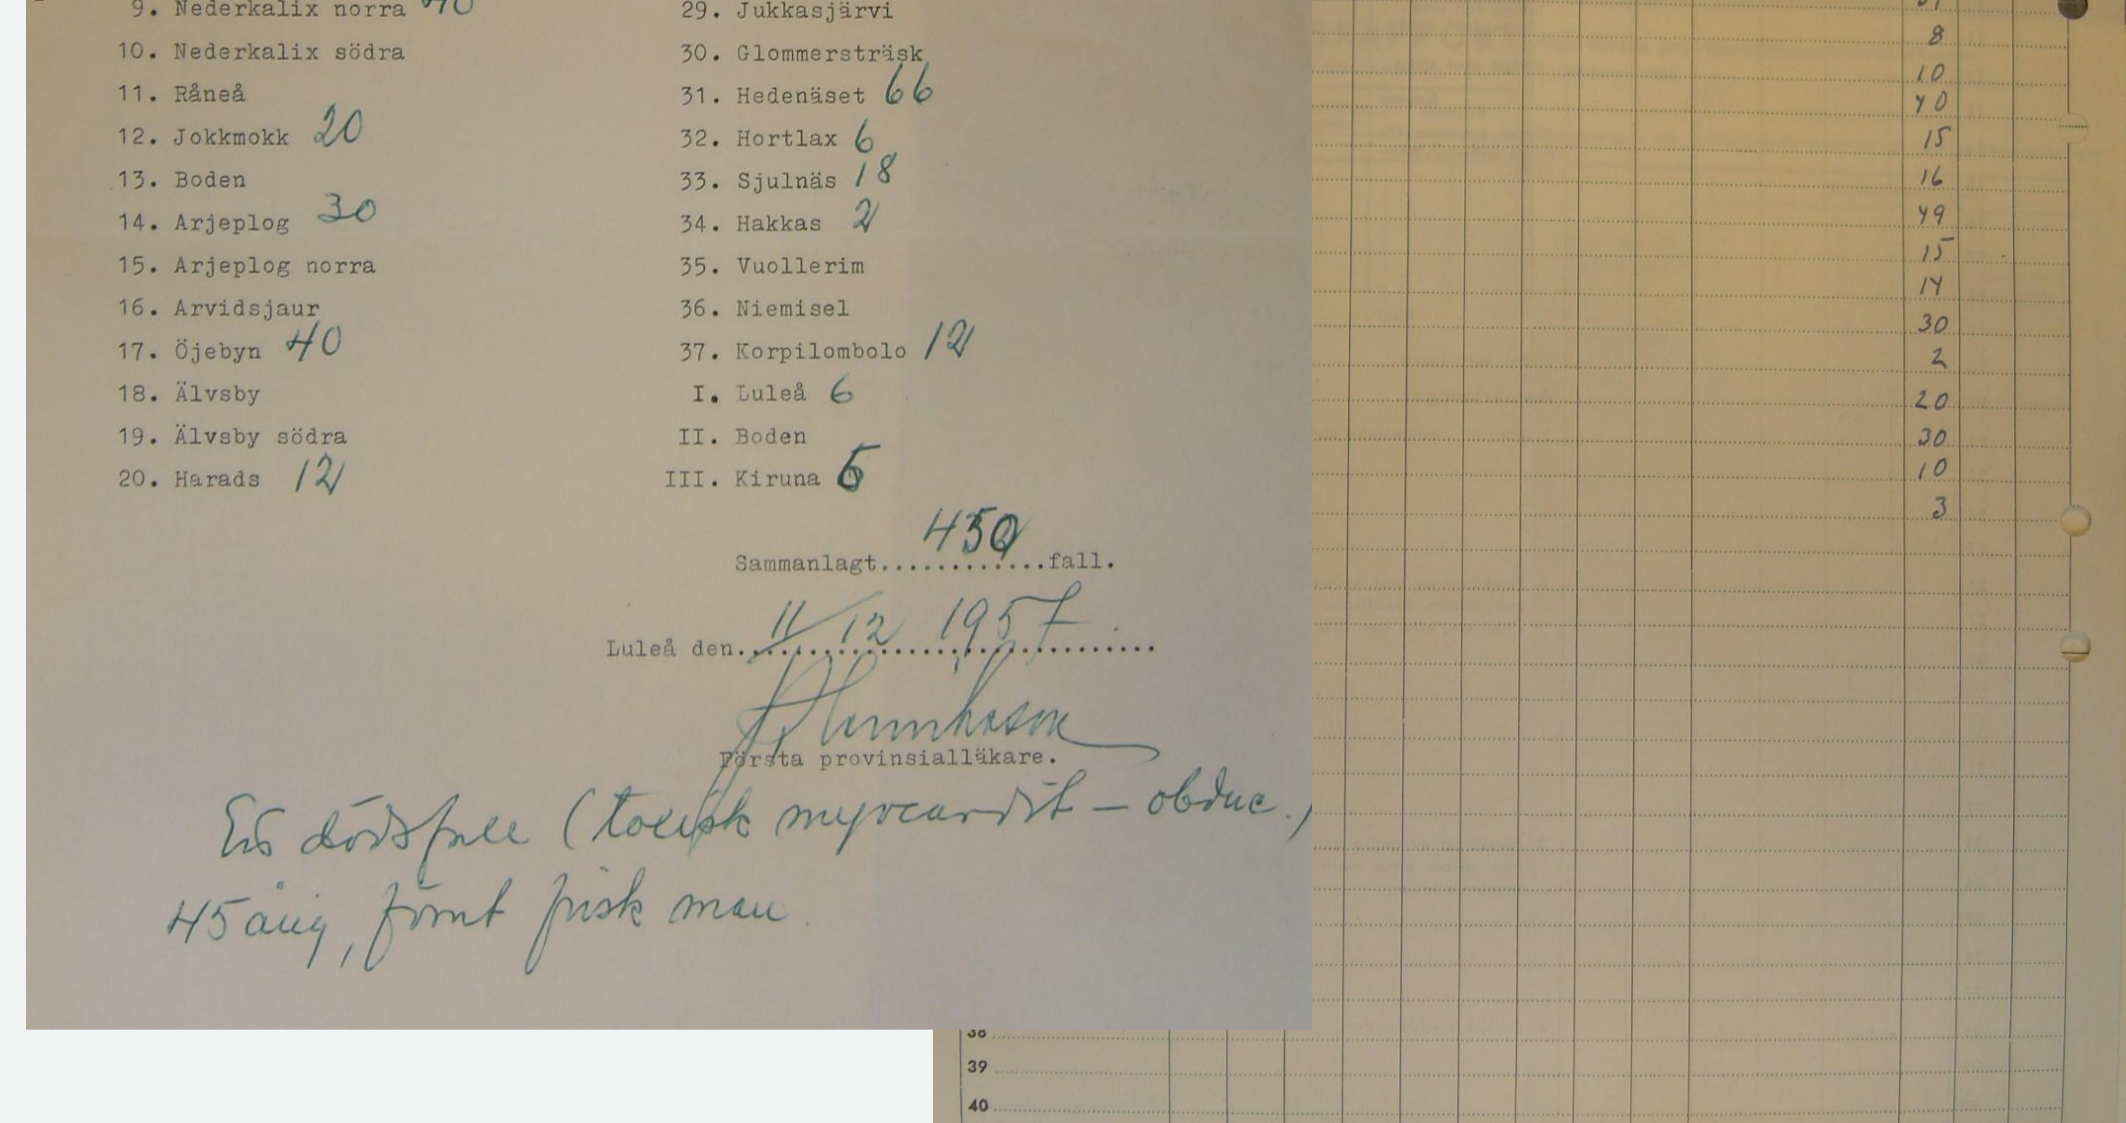 9. Nederkalix norra 40
10. Nederkalix södra
11. Råneå
12. Jokkmokk 20
13. Boden
14. Arjeplog 30
15. Arjeplog norra
16. Arvidsjaur
17. Öjebyn 40
18. Älvsby
19. Älvsby södra
20. Harads 12
29. Jukkasjärvi
30. Glommersträsk
31. Hedenäset 66
32. Hortlax 6
33. Sjulnäs 18
34. Hakkas 2
35. Vuollerim
36. Niemisel
37. Korpilombolo 12
I. Luleå 6
II. Boden
III. Kiruna 5
Sammanlagt 450 fall.
Luleå den 11/12 1957
Första provinsialläkare.
Ett dödsfall (toxisk myocardit – obduc.)
45 årig, förut frisk man.
8
10
40
15
16
49
15
14
30
2
20
30
10
3
38
39
40